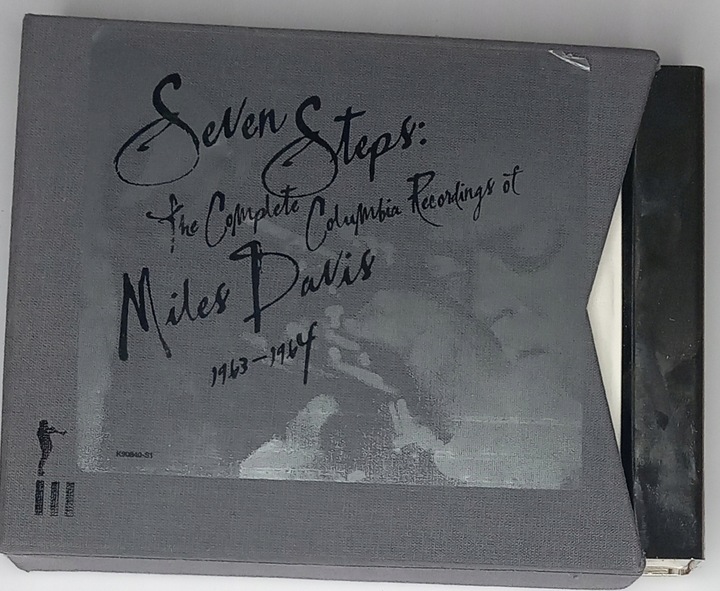 Seven Steps:
The Complete Columbia Recordings of
Miles Davis
1963-1964
K90840-S1